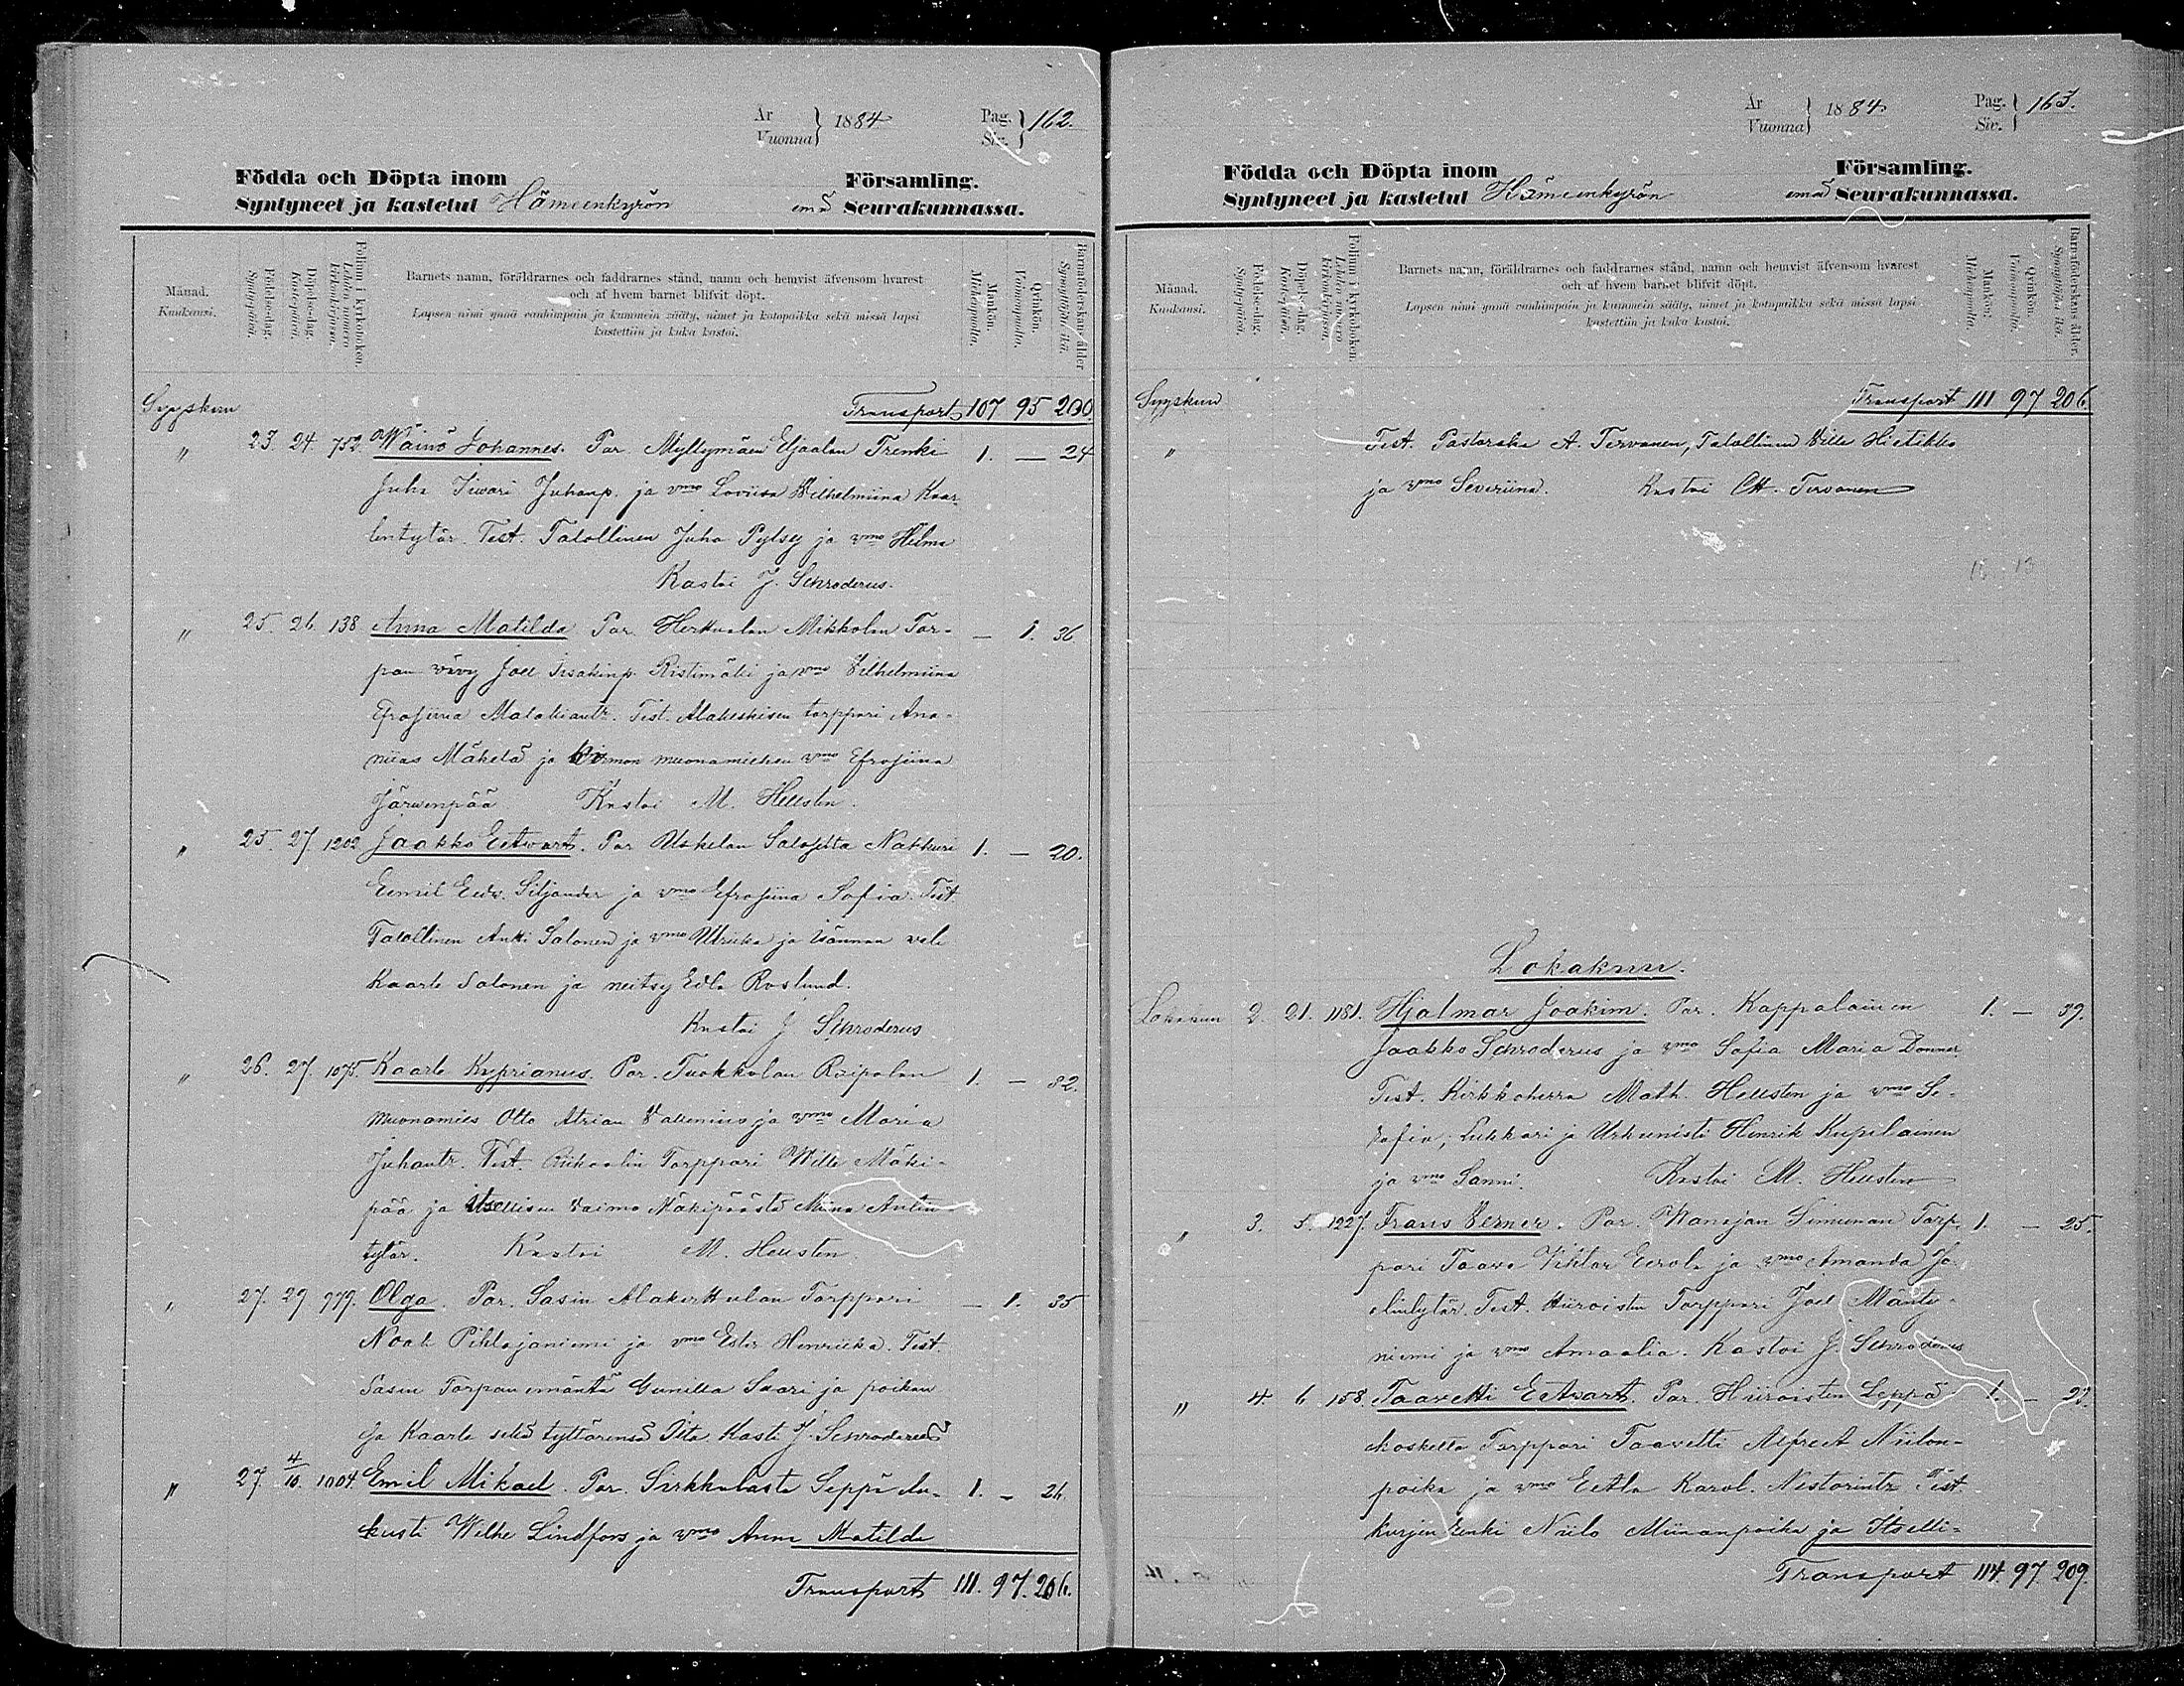 År
Vuonna } 1884.
Pag.
Siv. } 162.
Födda och Döpta inom Församling.
Syntyneet ja kastetut Hämeenkyrön emä Seurakunnassa.
Månad.
Kuukausi.
Födelse-dag.
Syntypäivä.
Döpelse-dag.
Kastepäivä.
Folium i kyrkoboken.
Lehden numero kirkonkirjassa.
Barnets namn, föräldrarnes och faddrarnes stånd, namn och hemvist äfvensom hvarest
och af hvem barnet blifvit döpt.
Lapsen nimi ynnä vanhimpain ja kummein sääty, nimet ja kotopaikka sekä missä lapsi
kastettiin ja kuka kastoi.
Mankön.
Miehenpuolia.
Qvinkön.
Vaimonpuolia.
Barnaföderskans ålder
Synnyttäjän ikä.
Syyskuu Transport 107 95 200
" 23. 24. 752. Wäinö Johannes. Par. Myllymäen Eljaalan Trenki 1. — 24
Juha Iivari Juhanp. ja vmo Loviisa Wilhelmiina Kaar-
lentytär. Test. Talollinen Juho Pylsy ja vmo Helma
Kastoi J. Schroderus.
" 25. 26. 138 Anna Matilda Par. Herttualan Mikkolan Tor- — 1. 36
pan vävy Joel Iisakinp. Ristimäki ja vmo Vilhelmiina
Efrosiina Malakiantr. Test. torppari Ana-
niias Mäkelä ja muonamiehen vmo Efrosiina
Järwenpää. Kastoi M. Hellsten.
" 25. 27. 1202 Jaakko Eetwart. Par Uskelan Nahkuri 1. — 20.
Eemil Edw. Siljander ja vmo Efrosiina Sofia. Test.
Talollinen Antti Salonen ja vmo Ulriika ja isännän veli
Kaarle Salonen ja neitsy Edla Roslund.
Kastoi J Schroderus
" 26. 27. 1075. Kaarle Kyprianus. Par. Tuokkolan Raipalan 1. — 32.
muonamies Otto Atrian Vallenius ja vmo Maria
Juhantr. Test. Torppari Wille Mäki-
pää ja itsellisen vaimo Mäkipäästä Miina Antin-
tytär. Kastoi M. Hellsten.
" 27. 29 979. Olga. Par. Sasin Alakerttulan Torppari — 1. 35
Noah Pihlajaniemi ja vmo Ester Henriika. Test.
Sasin Torpan emäntä Gunilla Saari ja poikan
sa Kaarle sekä tyttärensä Iita. Kasti J. Schroderus
" 27. 4/10. 1004. Emil Mikael. Par. Sirkkalasta Seppä Au- 1. — 26.
kusti Wilhe Lindfors ja vmo Anna Matilda
Transport 111. 97. 206.
År
Vuonna } 1884.
Pag.
Siv. } 163.
Födda och Döpta inom Församling.
Syntyneet ja kastetut Hämeenkyrön emä Seurakunnassa.
Månad.
Kuukausi.
Födelse-dag.
Syntypäivä.
Döpelse-dag.
Kastepäivä.
Folium i kyrkoboken.
Lehden numero kirkonkirjassa.
Barnets namn, föräldrarnes och faddrarnes stånd, namn och hemvist äfvensom hvarest
och af hvem barnet blifvit döpt.
Lapsen nimi ynnä vanhimpain ja kummein sääty, nimet ja kotopaikka sekä missä lapsi
kastettiin ja kuka kastoi.
Mankön.
Miehenpuolia.
Qvinkön.
Vaimonpuolia.
Barnaföderskans ålder.
Synnyttäjän ikä.
Syyskuu Transport 111 97 206.
" Test. Pastorska A. Tervonen, Talollinen Ville Hietikko
ja vmo Severiina. Kastoi Ott. Tervonen
Lokakuu.
Lokakuu 2. 21. 1181. Hjalmar Joakim. Par. Kappalainen 1. — 39.
Jaakko Schroderus ja vmo Sofia Maria Donner
Test. Kirkkoherra Math. Hellsten ja vmo Se-
rafia, Lukkari ja Urkunisti Henrik Kupilainen
ja vmo Sanni. Kastoi M. Hellsten
" 3. 5. 1227. Frans Verner. Par. Wanajan Simunan Torp- 1. — 25.
pari Taave Vihtor Eerola ja vmo Amanda Jo-
elintytär. Test. Hiiroisten Torppari Joel Mänty-
niemi ja vmo Amaalia. Kastoi J. Schroderus
" 4. 6 158. Taavetti Eetwart. Par. Hiiroisten Leppä 1. — 27.
koskelta Torppari Taavetti Alfreet Niilon-
poika ja vmo Eetla Karol. Nestorintr. Test.
Kurjen renki Niilo Miinanpoika ja Itselli-
Transport 114. 97. 209.